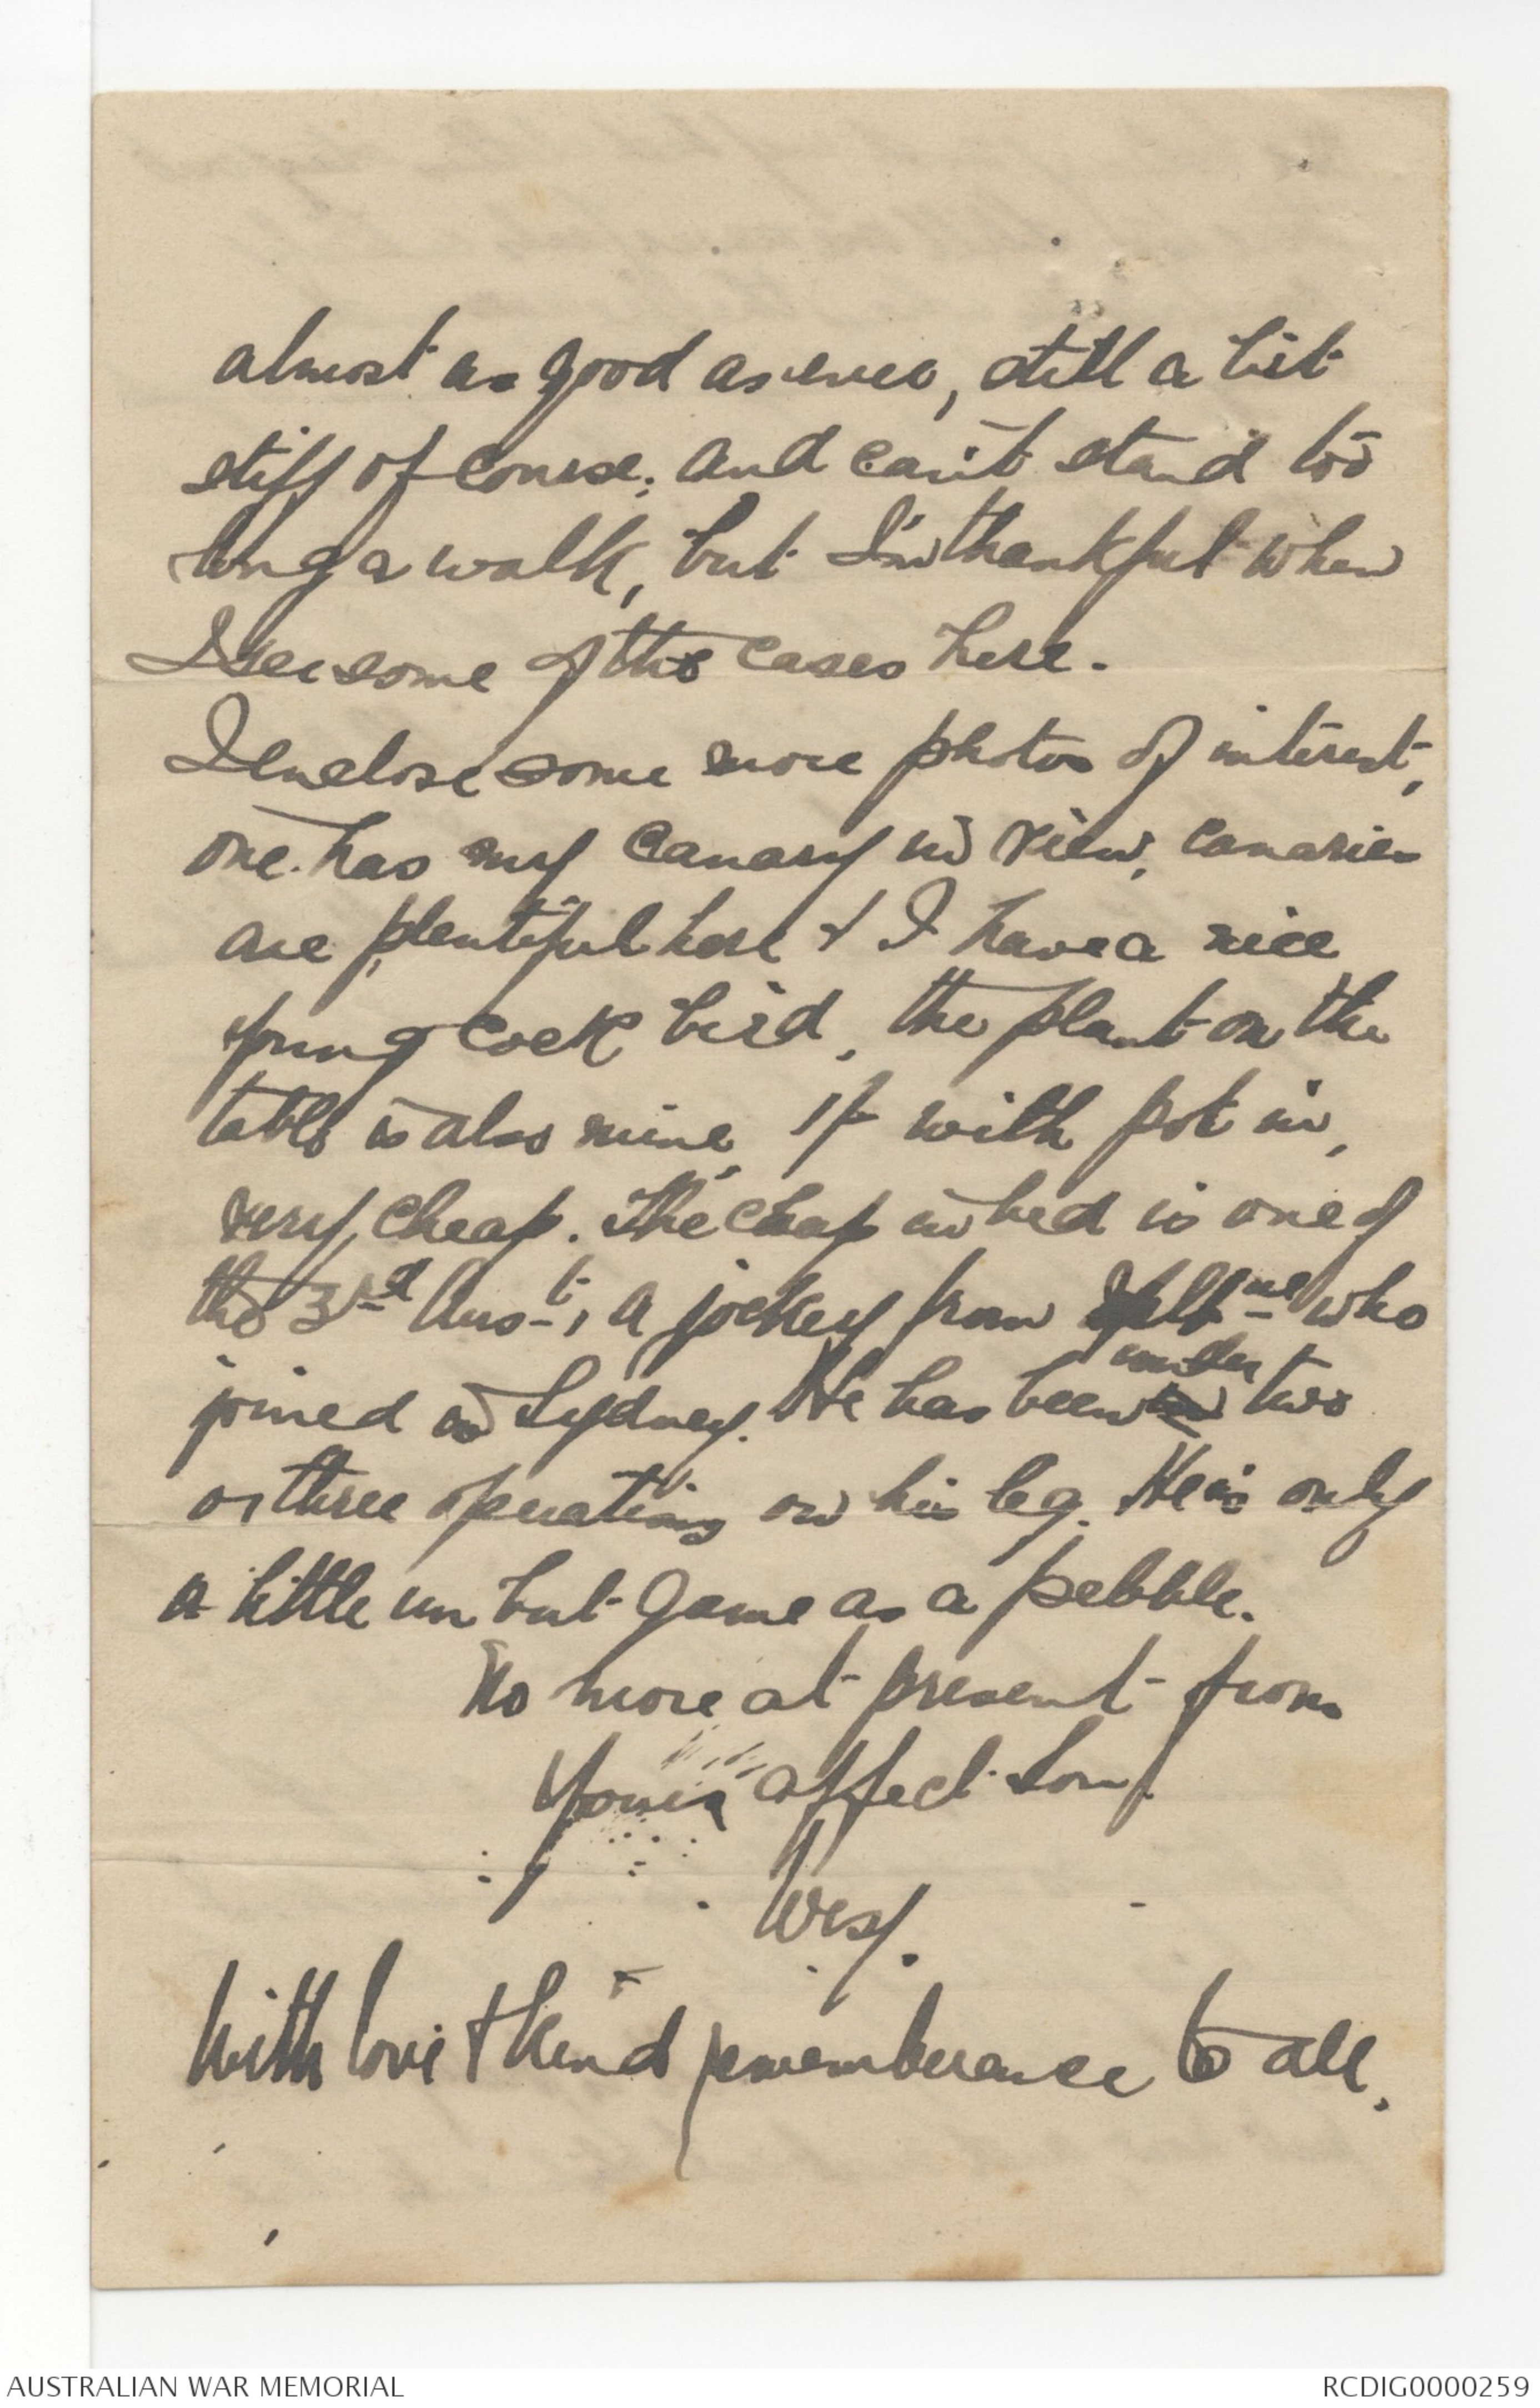 almost as good as ever, still a bit
stiff of course; and can't stand too
long a walk, but I'm thankful when
I see some of the cases here.
I enclose some more photos of interest,
one has my canary in view, canaries
are plentiful here & I have a nice
young cock bird, the plant on the
table is also mine, 1/- with pot in,
very cheap. The chap in bed is one of
the 3rd Aust, a jockey from Melbne who
joined in Sydney. He has been under two
or three operations on his leg. He is only
a little un but game as a pebble.
No more at present from
Your affect Son
Wesl.
With love & kind rememberance to all.
AUSTRALIAN WAR MEMORIAL
RCDIG0000259